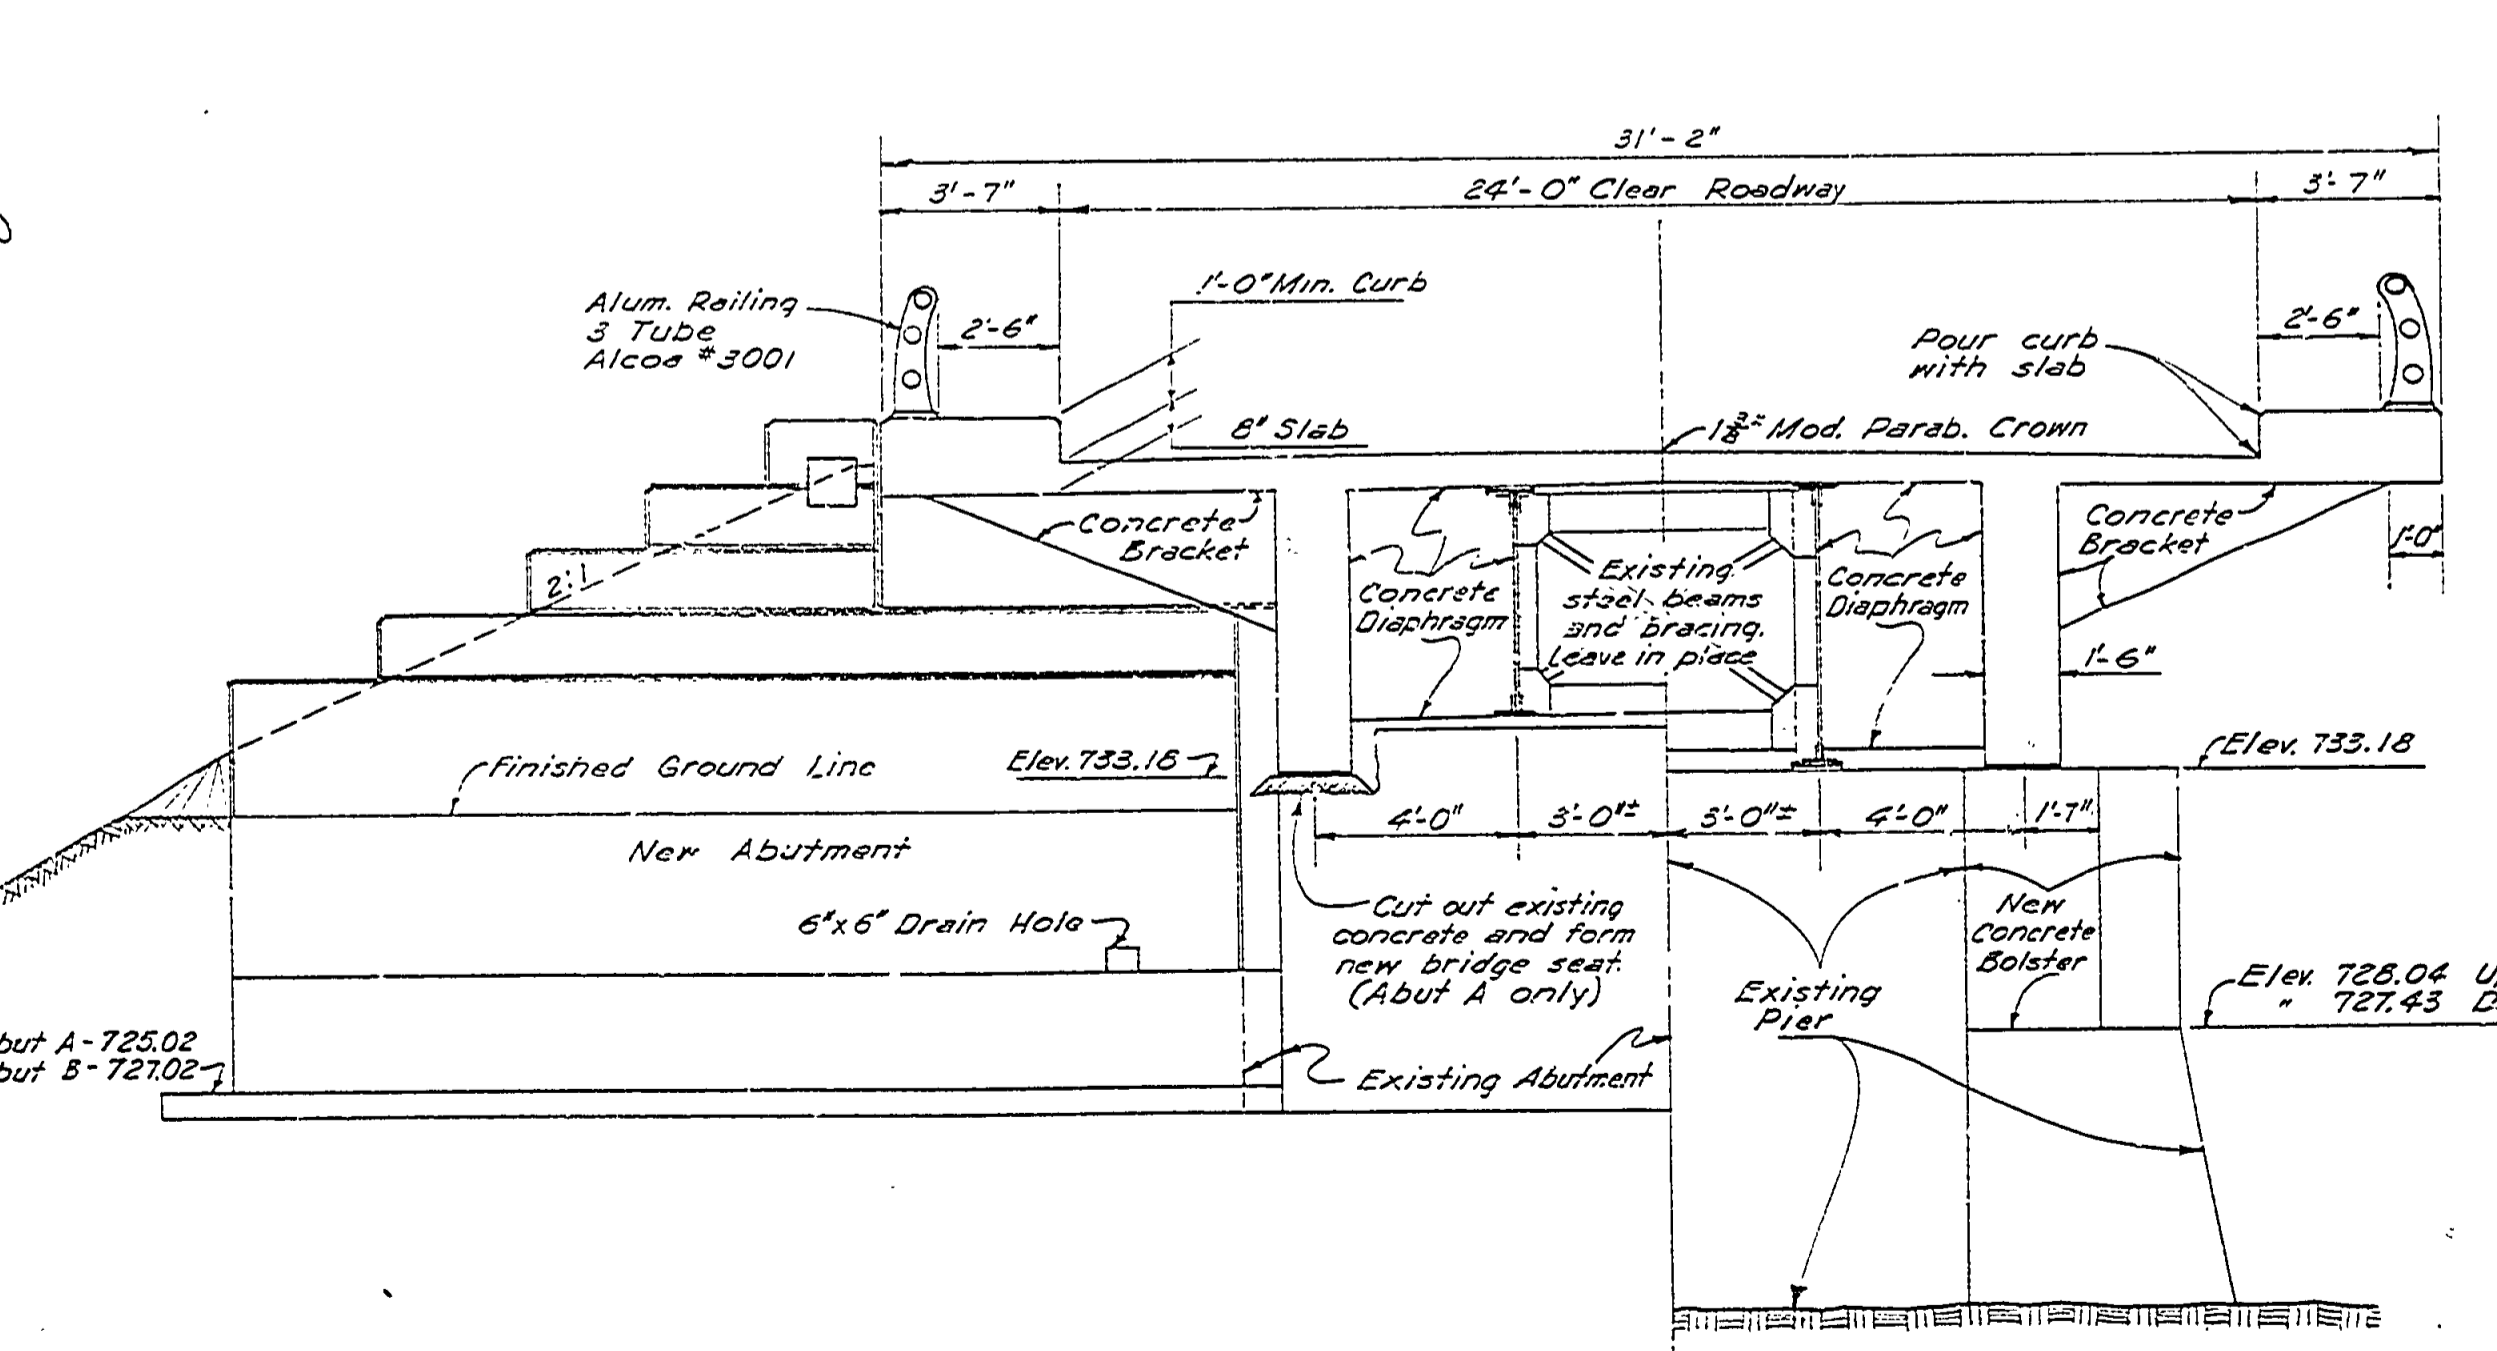 31'-2"
3'-7"
24'-0" Clear Roadway
3'-7"
1'-0" Min. Curb
Alum. Railing
3 Tube
Alcoa #3001
2'-6"
2'-6"
Pour curb
with slab
8" Slab
1 3/8" Mod. Parab. Crown
Concrete
Bracket
Concrete
Bracket
1'-0"
2:1
Existing
steel beams
and bracing.
Leave in place
Concrete
Diaphragm
Concrete
Diaphragm
1'-6"
Finished Ground Line
Elev. 733.18
Elev. 733.18
4'-0"
3'-0"±
3'-0"±
4'-0"
1'-7"
New Abutment
6"x6" Drain Hole
Cut out existing
concrete and form
new bridge seat.
(Abut A only)
New
Concrete
Bolster
Existing
Pier
Elev. 728.04
" 727.43
but A-725.02
but B-727.02
Existing Abutment